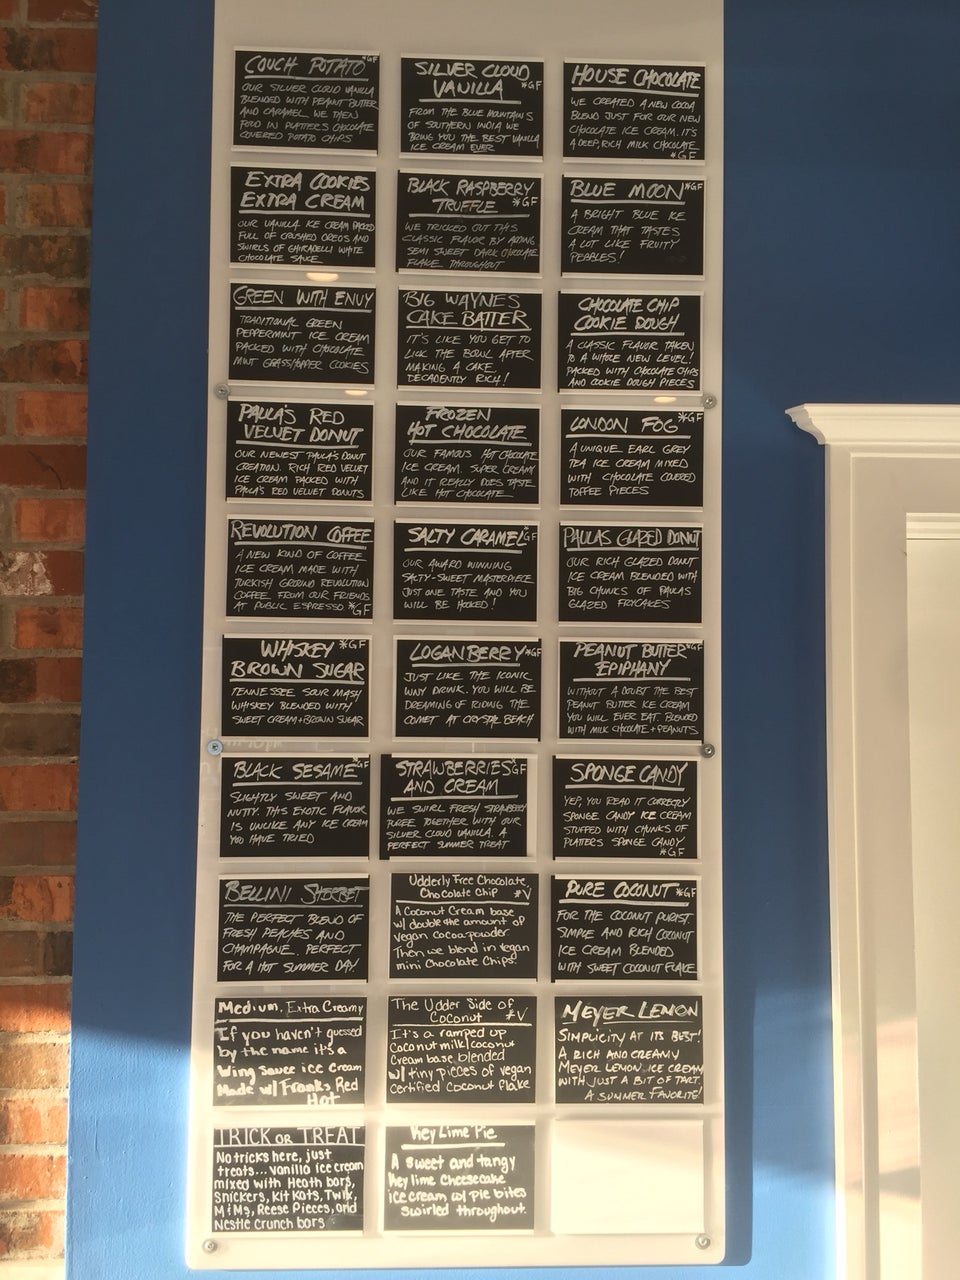 COUCH POTATO *GF
OUR SILVER CLOUD VANILLA
BLENDED WITH PEANUT BUTTER
AND CARAMEL WE THEN
FOLD IN PLATTER'S CHOCOLATE
COVERED POTATO CHIPS
SILVER CLOUD
VANILLA *GF
FROM THE BLUE MOUNTAINS
OF SOUTHERN INDIA WE
BRING YOU THE BEST VANILLA
ICE CREAM EVER
HOUSE CHOCOLATE
WE CREATED A NEW COCOA
BLEND JUST FOR OUR NEW
CHOCOLATE ICE CREAM. IT'S
A DEEP, RICH MILK CHOCOLATE
*GF
EXTRA COOKIES
EXTRA CREAM
OUR VANILLA ICE CREAM PACKED
FULL OF CRUSHED OREOS AND
SWIRLS OF GHIRADELLI WHITE
CHOCOLATE SAUCE
BLACK RASPBERRY
TRUFFLE *GF
WE TRICKED OUT THIS
CLASSIC FLAVOR BY ADDING
SEMI SWEET DARK CHOCOLATE
FLAKE THROUGHOUT
BLUE MOON *GF
A BRIGHT BLUE ICE
CREAM THAT TASTES
A LOT LIKE FRUITY
PEBBLES!
GREEN WITH ENVY
TRADITIONAL GREEN
PEPPERMINT ICE CREAM
PACKED WITH CHOCOLATE
MINT GRASSHOPPER COOKIES
BIG WAYNES
CAKE BATTER
IT'S LIKE YOU GET TO
LICK THE BOWL AFTER
MAKING A CAKE.
DECADENTLY RICH!
CHOCOLATE CHIP
COOKIE DOUGH
A CLASSIC FLAVOR TAKEN
TO A WHOLE NEW LEVEL!
PACKED WITH CHOCOLATE CHIPS
AND COOKIE DOUGH PIECES
PAULA'S RED
VELVET DONUT
OUR NEWEST PAULA'S DONUT
CREATION. RICH RED VELVET
ICE CREAM PACKED WITH
PAULA'S RED VELVET DONUTS
FROZEN
HOT CHOCOLATE
OUR FAMOUS HOT CHOCOLATE
ICE CREAM. SUPER CREAMY
AND IT REALLY DOES TASTE
LIKE HOT CHOCOLATE
LONDON FOG *GF
A UNIQUE EARL GREY
TEA ICE CREAM MIXED
WITH CHOCOLATE COVERED
TOFFEE PIECES
REVOLUTION COFFEE
A NEW KIND OF COFFEE
ICE CREAM MADE WITH
TURKISH GROUND REVOLUTION
COFFEE FROM OUR FRIENDS
AT PUBLIC ESPRESSO *GF
SALTY CARAMEL *GF
OUR AWARD WINNING
SALTY-SWEET MASTERPIECE
JUST ONE TASTE AND YOU
WILL BE HOOKED!
PAULAS GLAZED DONUT
OUR RICH GLAZED DONUT
ICE CREAM BLENDED WITH
BIG CHUNKS OF PAULAS
GLAZED FRYCAKES
WHISKEY *GF
BROWN SUGAR
TENNESSEE SOUR MASH
WHISKEY BLENDED WITH
SWEET CREAM+BROWN SUGAR
LOGANBERRY *GF
JUST LIKE THE ICONIC
WNY DRINK. YOU WILL BE
DREAMING OF RIDING THE
COMET AT CRYSTAL BEACH
PEANUT BUTTER *GF
EPIPHANY
WITHOUT A DOUBT THE BEST
PEANUT BUTTER ICE CREAM
YOU WILL EVER EAT. BLENDED
WITH MILK CHOCOLATE + PEANUTS
BLACK SESAME *GF
SLIGHTLY SWEET AND
NUTTY. THIS EXOTIC FLAVOR
IS UNLIKE ANY ICE CREAM
YOU HAVE TRIED
STRAWBERRIES *GF
AND CREAM
WE SWIRL FRESH STRAWBERRY
PUREE TOGETHER WITH OUR
SILVER CLOUD VANILLA. A
PERFECT SUMMER TREAT
SPONGE CANDY
YEP, YOU READ IT CORRECTLY
SPONGE CANDY ICE CREAM
STUFFED WITH CHUNKS OF
PLATTERS SPONGE CANDY
*GF
BELLINI SHERBET
THE PERFECT BLEND OF
FRESH PEACHES AND
CHAMPAGNE. PERFECT
FOR A HOT SUMMER DAY.
Udderly Free Chocolate
Chocolate Chip *V
A Coconut Cream base
w/ double the amount of
vegan cocoa powder
Then we blend in vegan
mini Chocolate Chips.
PURE COCONUT *GF
FOR THE COCONUT PURIST
SIMPLE AND RICH COCONUT
ICE CREAM BLENDED
WITH SWEET COCONUT FLAKE
Medium, Extra Creamy
If you haven't guessed
by the name it's a
Wing Sauce ice Cream
Made w/ Franks Red
Hot
The Udder Side of
Coconut *V
It's a ramped up
Coconut milk/coconut
Cream base blended
w/ tiny pieces of vegan
certified Coconut flake
MEYER LEMON
SIMPLICITY AT ITS BEST!
A RICH AND CREAMY
MEYER LEMON ICE CREAM
WITH JUST A BIT OF TART.
A SUMMER FAVORITE!
TRICK OR TREAT
No tricks here, just
treats... vanilla ice cream
mixed with Heath bars,
Snickers, Kit Kats, Twix,
M&Ms, Reese Pieces, and
Nestle Crunch bars
Key Lime Pie
A sweet and tangy
Key lime Cheesecake
ice cream w/ pie bites
swirled throughout.